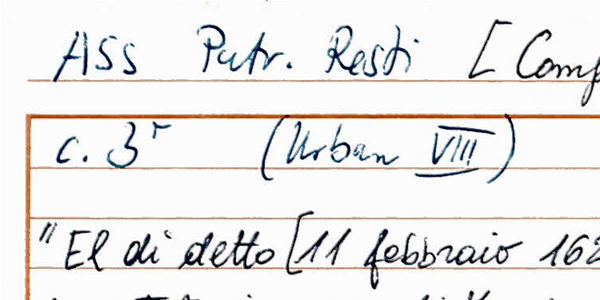 ASS Patr. Resti [Comp
c. 3r (Urban VIII)
"El di detto [11 febbraio 162